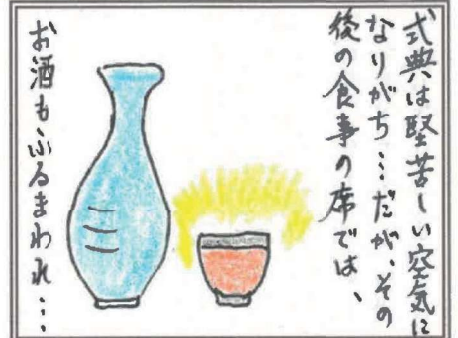 式典は堅苦しい空気に
なりがち…だが、その
後の食事の席では、
お酒もふるまわれ…